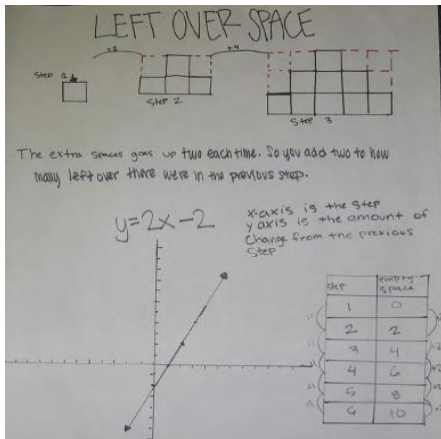 LEFT OVER SPACE
+2
+4
Step 1
Step 2
Step 3
The extra spaces goes up two each time. So you add two to how
many left over there were in the previous step.
y=2x-2
x-axis is the step
y axis is the amount of
change from the previous
step
step empty space
1 0
2 2
3 4
4 6
5 8
6 10